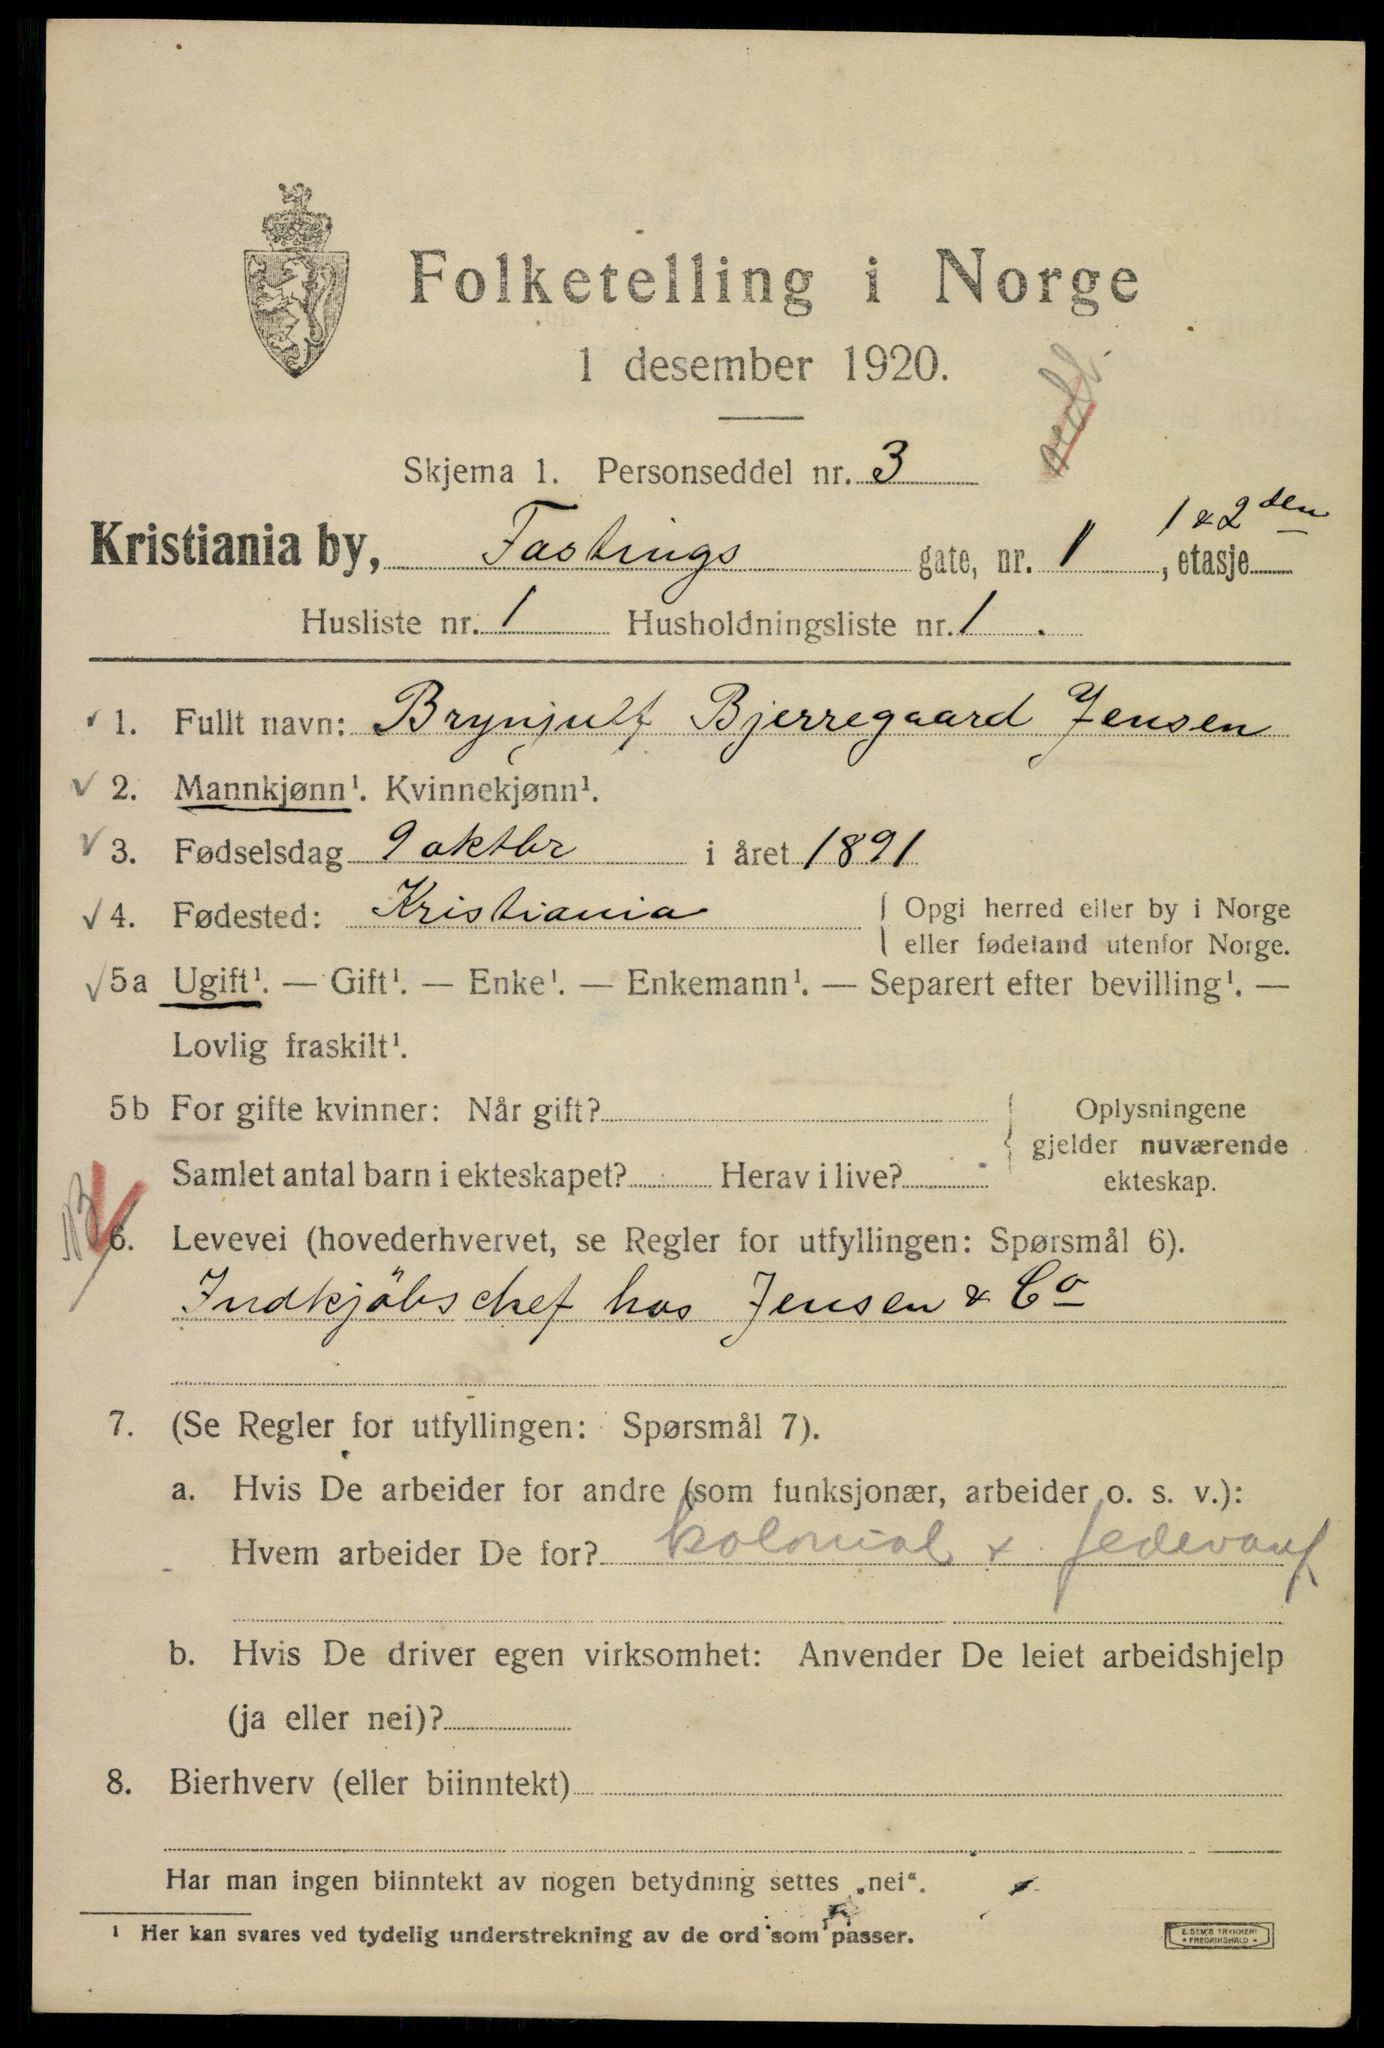 Folketelling i Norge
1 desember 1920.
Skjema 1. Personseddel nr. 3
Kristiania by, Fastings gate, nr. 1, etasje 1 & 2den
Husliste nr. 1 Husholdningsliste nr. 1.
1. Fullt navn: Brynjulf Bjerregaard Jensen
2. Mannkjønn¹. Kvinnekjønn¹.
3. Fødselsdag 9 oktbr i året 1891
4. Fødested: Kristiania
Opgi herred eller by i Norge
eller fødeland utenfor Norge.
5a Ugift¹. — Gift¹. — Enke¹. — Enkemann¹. — Separert efter bevilling¹. —
Lovlig fraskilt¹.
5b For gifte kvinner: Når gift?
Samlet antal barn i ekteskapet? Herav i live?
Oplysningene
gjelder nuværende
ekteskap.
6. Levevei (hovederhvervet, se Regler for utfyllingen: Spørsmål 6).
Indkjöbschef hos Jensen & Co
7. (Se Regler for utfyllingen: Spørsmål 7).
a. Hvis De arbeider for andre (som funksjonær, arbeider o. s. v.):
Hvem arbeider De for? kolonial &
b. Hvis De driver egen virksomhet: Anvender De leiet arbeidshjelp
(ja eller nei)?
8. Bierhverv (eller biinntekt)
Har man ingen biinntekt av nogen betydning settes „nei“.
¹ Her kan svares ved tydelig understrekning av de ord som passer.
E. SEM'S TRYKKERI
• FREDRIKSHALD •